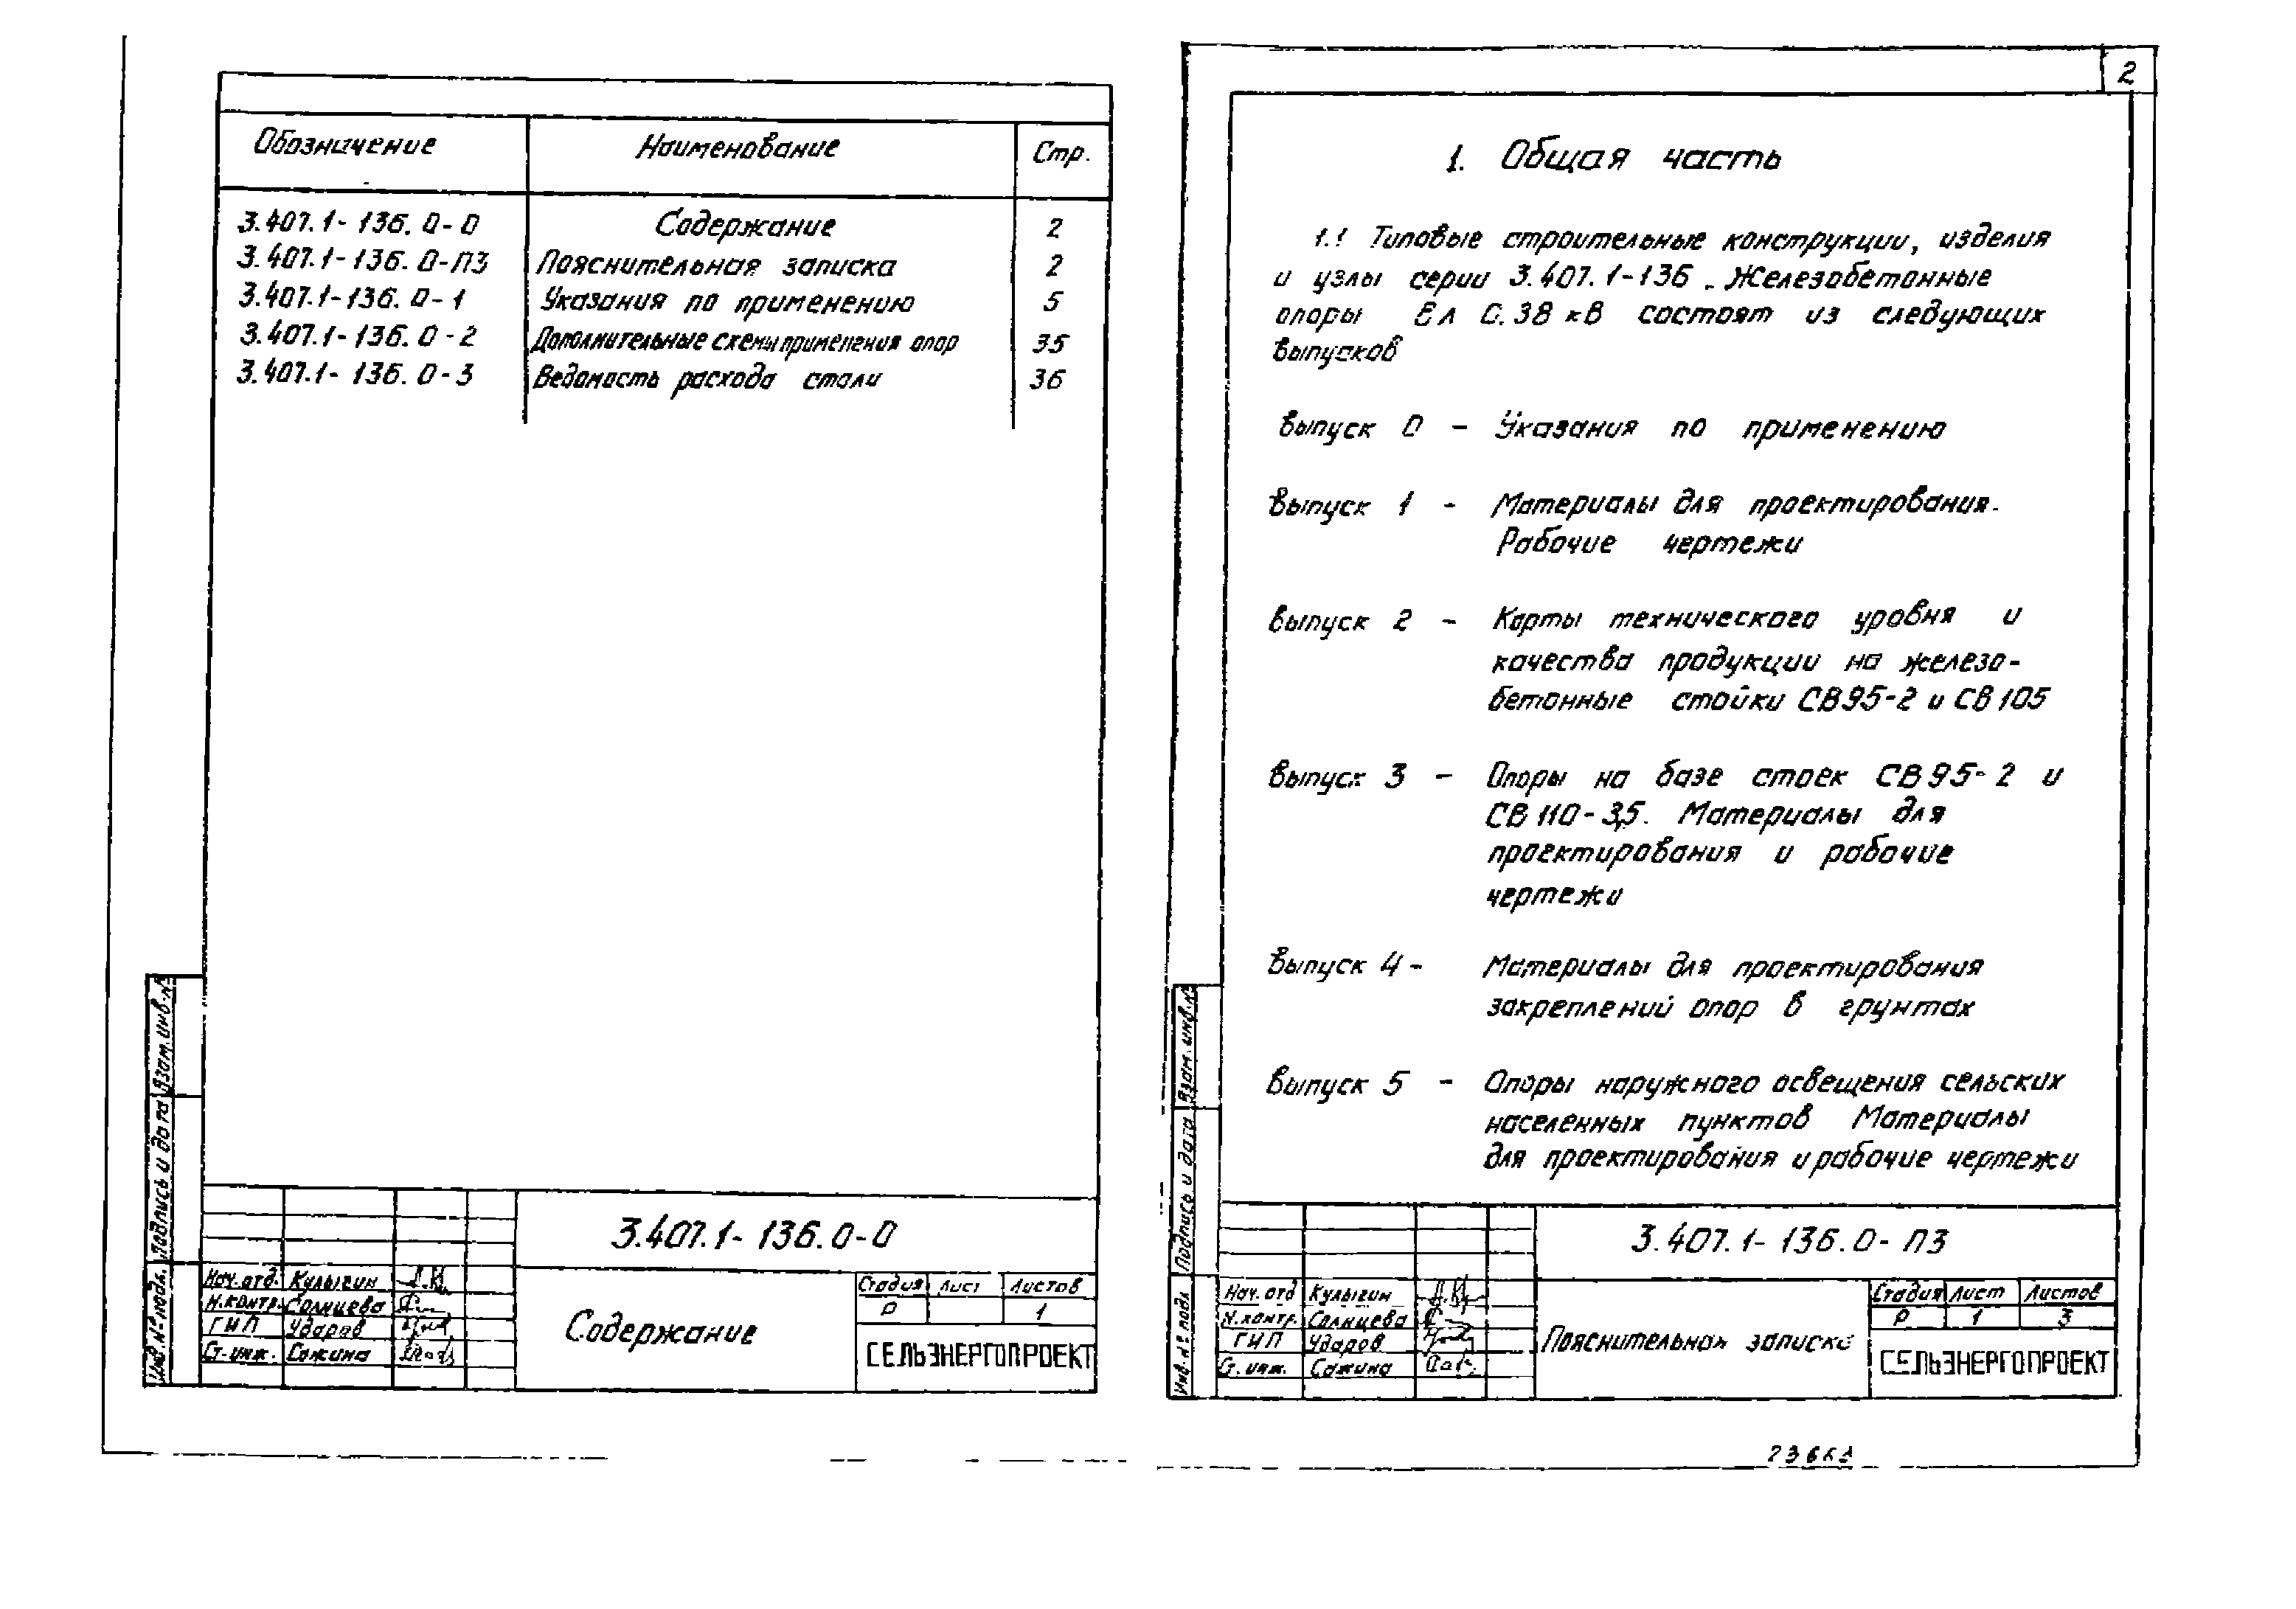 Обозначение Наименование Стр.
3.407.1-136.0-0 Содержание 2
3.407.1-136.0-ПЗ Пояснительная записка 2
3.407.1-136.0-1 Указания по применению 5
3.407.1-136.0-2 Дополнительные схемы применения опор 35
3.407.1-136.0-3 Ведомость расхода стали 36
Взам.инв.№
Подпись и дата
Инв.№ подл.
3.407.1-136.0-0
Нач.отд. Кулыгин
Н.контр. Солнцева
ГИП Ударов
Ст.инж. Сажина
Содержание
Стадия Лист Листов
Р 1
СЕЛЬЭНЕРГОПРОЕКТ
2
1. Общая часть
1.1 Типовые строительные конструкции, изделия
и узлы серии 3.407.1-136. Железобетонные
опоры Вл 0.38 кВ состоят из следующих
выпусков
Выпуск 0 - Указания по применению
Выпуск 1 - Материалы для проектирования.
Рабочие чертежи
Выпуск 2 - Карты технического уровня и
качества продукции на железо-
бетонные стойки СВ95-2 и СВ105
Выпуск 3 - Опоры на базе стоек СВ95-2 и
СВ110-3,5. Материалы для
проектирования и рабочие
чертежи
Выпуск 4 - Материалы для проектирования
закреплений опор в грунтах
Выпуск 5 - Опоры наружного освещения сельских
населенных пунктов Материалы
для проектирования и рабочие чертежи
Взам.инв.№
Подпись и дата
Инв.№ подл
3.407.1-136.0-ПЗ
Нач.отд Кулыгин
Н.контр. Солнцева
ГИП Ударов
Ст.инж. Сажина
Пояснительная записка
Стадия Лист Листов
Р 1 3
СЕЛЬЭНЕРГОПРОЕКТ